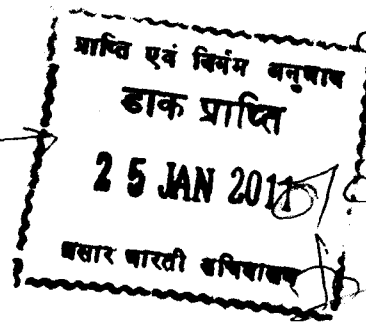 प्राप्ति एवं निर्गम अनुभाग
डाक प्राप्ति
2 5 JAN 2011
प्रसार भारती सचिवालय